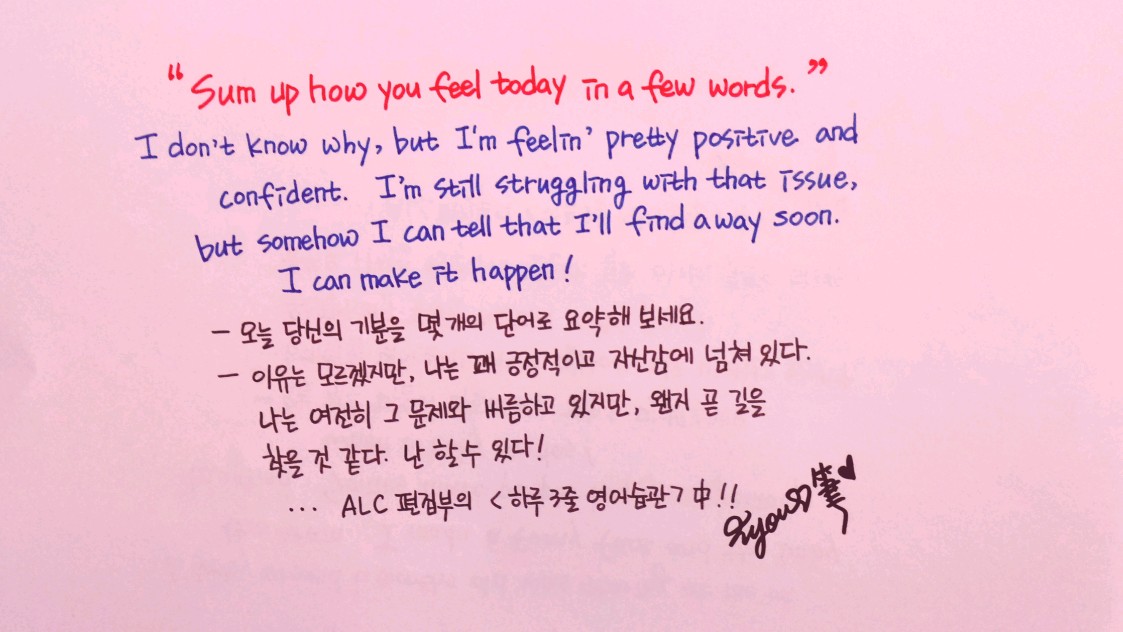 “Sum up how you feel today in a few words.”
I don't know why, but I'm feelin' pretty positive and
confident. I'm still struggling with that issue,
but somehow I can tell that I'll find a way soon.
I can make it happen!
– 오늘 당신의 기분을 몇 개의 단어로 요약해 보세요.
– 이유는 모르겠지만, 나는 꽤 긍정적이고 자신감에 넘쳐 있다.
나는 여전히 그 문제와 씨름하고 있지만, 왠지 곧 길을
찾을 것 같다. 난 할 수 있다!
... ALC 편집부의 <하루 3줄 영어습관> 中!!
筆